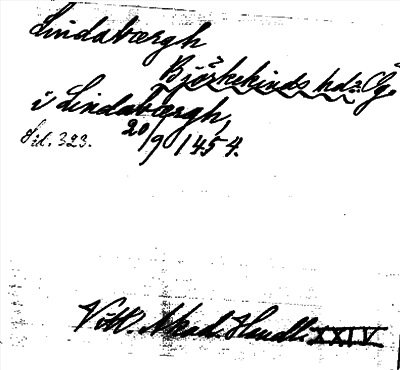 Lindabærgh
Björkekinds hd: Ög.
i Lindabærgh,
Sid. 323. 20/9 1454.
Vitt. Akad. Handl. XXIV